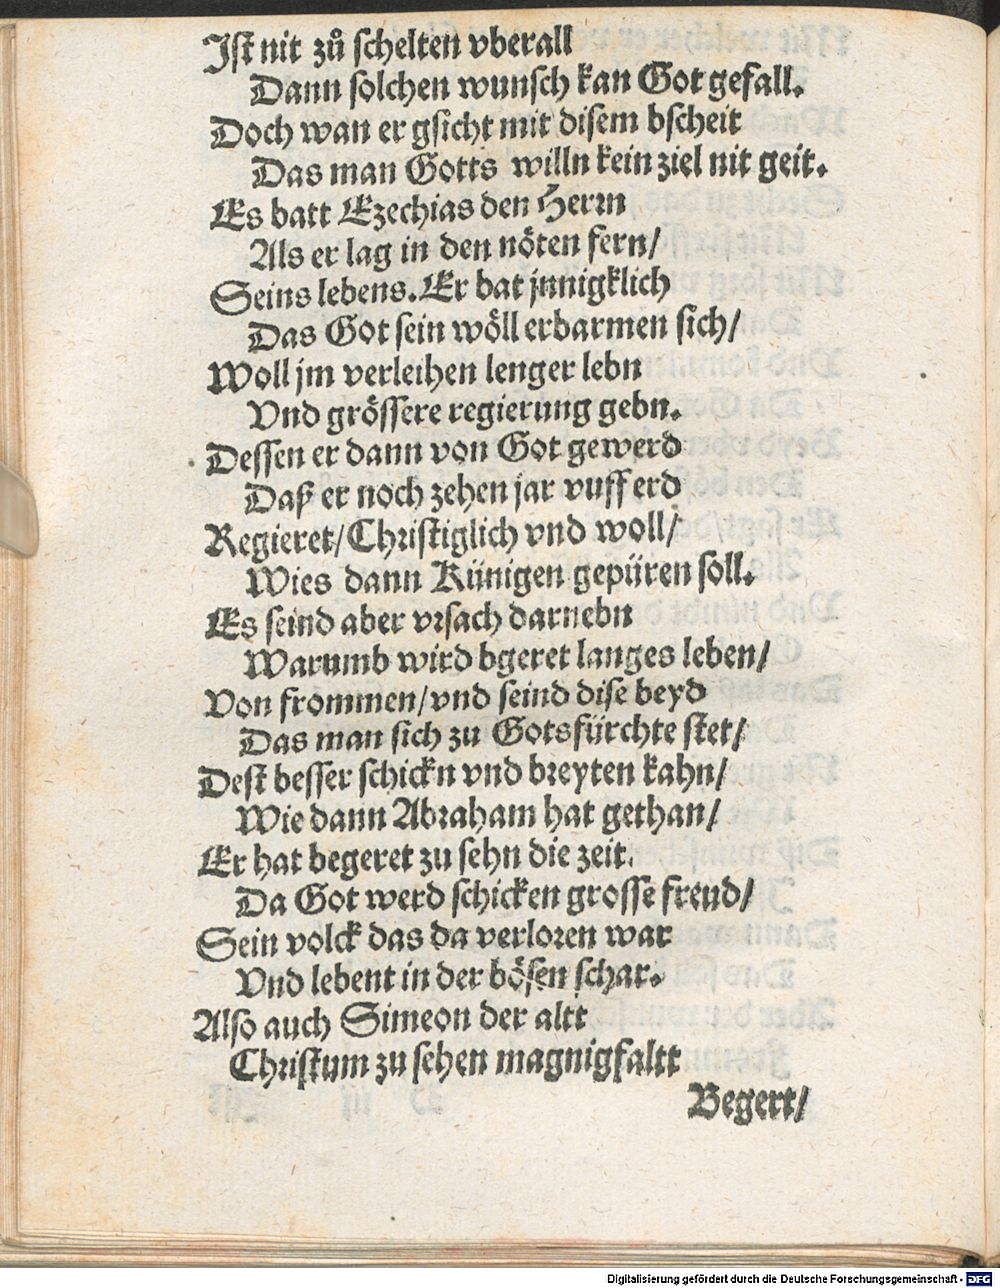 Ist nit zů schelten vberall
Dann solchen wunsch kan Got gefall.
Doch wan er gsicht mit disem bscheit
Das man Gotts willn kein ziel nit geit.
Es batt Ezechias den Herrn
Als er lag in den nöten fern/
Seins lebens. Er bat jnnigklich
Das Got sein wöll erbarmen sich/
Woll jm verleihen lenger lebn
Vnd grössere regierung gebn.
Dessen er dann von Got gewerd
Daß er noch zehen jar vuff erd
Regieret/Christiglich vnd woll/
Wies dann Künigen gepüren soll.
Es seind aber vrsach darnebn
Warumb wird bgeret langes leben/
Von frommen/vnd seind dise beyd
Das man sich zu Gotsfürchte stet/
Dest besser schickn vnd breyten kahn/
Wie dann Abraham hat gethan/
Er hat begeret zu sehn die zeit.
Da Got werd schicken grosse freud/
Sein volck das da verloren war
Vnd lebent in der bösen schar.
Also auch Simeon der altt
Christum zu sehen magnigfaltt
Begert/
Digitalisierung gefördert durch die Deutsche Forschungsgemeinschaft - DFG